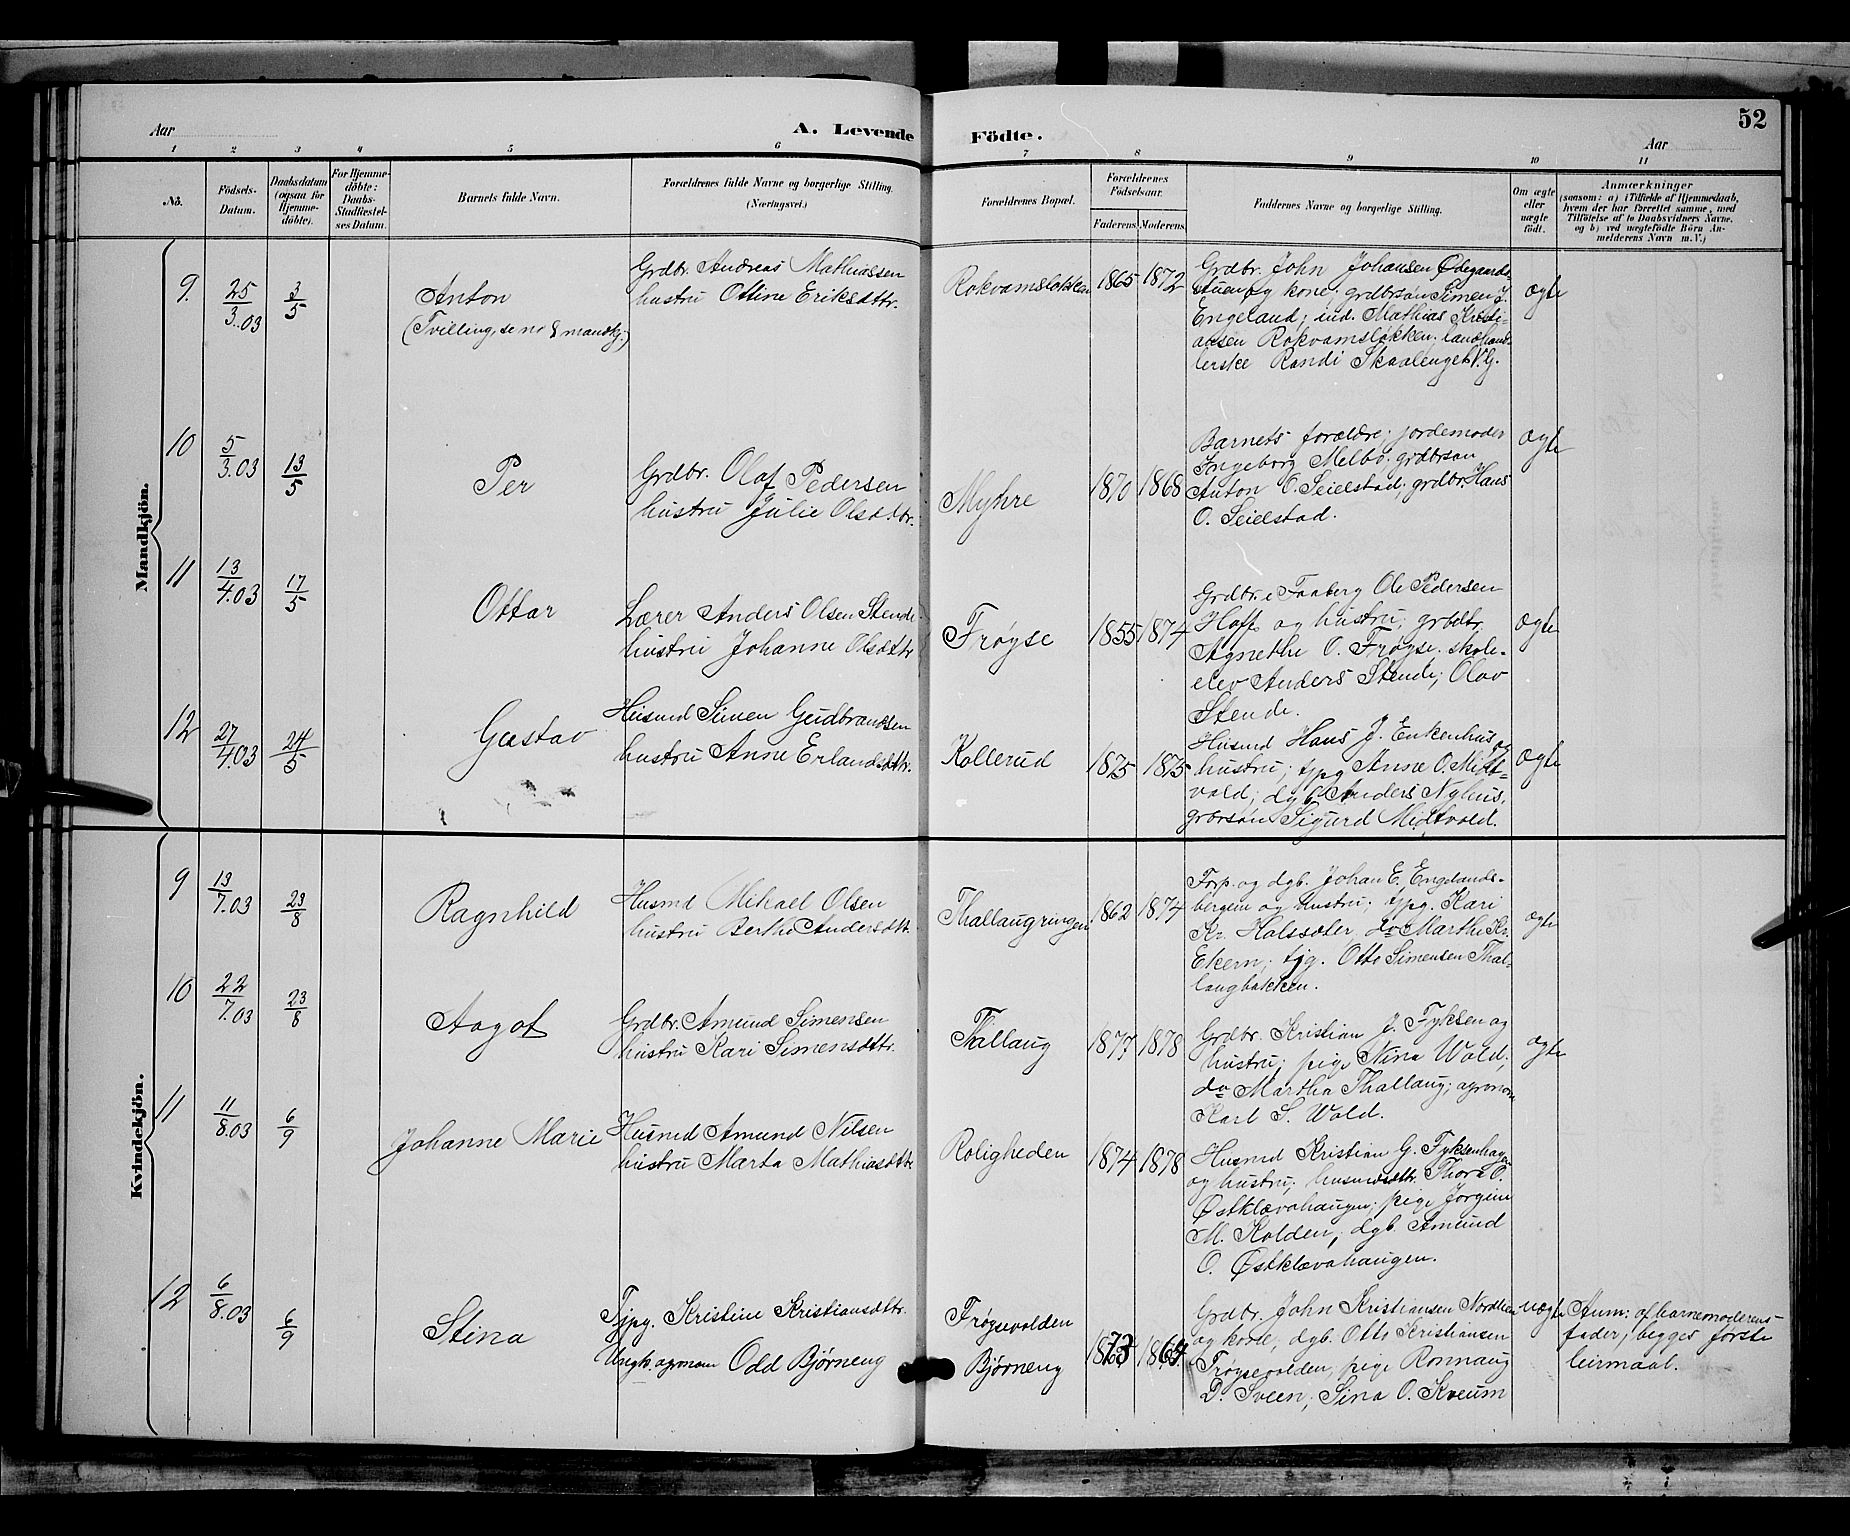 52
Aar
A. Levende
Födte.
Aar
1 2 3 4 5 6 7 8 9 10 11
No.
Födsels-
Datum.
Daabsdatum
(ogsaa for
Hjemme-
döbte).
For Hjemme-
döbte:
Daabs-
Stadfæstel-
ses Datum.
Barnets fulde Navn.
Forældrenes fulde Navne og borgerlige Stilling.
(Næringsvei.)
Forældrenes Bopæl.
Forældrenes
Födselsaar.
Faderens. Moderens.
Faddernes Navne og borgerlige Stilling.
Om ægte
eller
uægte
födt.
Anmærkninger
(saasom: a) i Tilfælde af Hjemmedaab,
hvem der har forrettet samme, med
Tilföielse af to Daabsvidners Navne,
og b) ved uægtefödte Börn An-
melderens Navn m. V.)
Mandkjön.
9. 25/3.03 3/5
Anton
(Tvilling, se no 8 mandkj.)
Grdbr. Andreas Mathiassen
hustru Ottine Eriksdttr.
Rokvamsløkken 1865 1872
Grdbr. John Johansen Ødegaards-
stuen og kone; grdbrsøn Simen J.
Engeland; ind. Mathias Kristi-
ansen Rokvamsløkken; landhand-
lerske Randi Skaalenget V.G.
ægte
10 5/3.03 13/5
Per
Grdbr. Olaf Pedersen
hustru Julie Olsdttr.
Myhre 1870 1868
Barnets forældre; jordemoder
Ingeborg Melbø; grdbrsøn
Anton O. Seielstad; grdbr. Hans
O. Seielstad.
ægte
11 13/4.03 17/5
Ottar
Lærer Anders Olsen Stende
hustru Johanne Olsdttr
Frøyse 1855 1874
Grdbr. i Faaberg Ole Pedersen
Hoff og hustru; grbdtr.
Agnethe O. Frøyse; skole-
elev Anders Stende; Olav
Stende.
ægte
12 27/4.03 24/5
Gustav
Husmd Simen Gudbrandsen
hustru Anne Erlandsdttr.
Kollerud 1875 1875
Husmd Hans J. Enkenhus og
hustru; tjpg Anne O. Midt-
vold; dgb. Anders Nyhus,
grbrsøn Sigurd Midtvold.
ægte
Kvindekjön.
9 13/7.03 23/8
Ragnhild
Husmd Mikael Olsen
hustru Berthe Andersdttr.
Thallaugringen 1862 1874
Forp. og dgb. Johan E. Engelands-
bergene og hustru; tjpg. Kari
Kr. Holssæter, do Marthe Kr.
Ekern; tjg. Otto Simensen Thal-
laugbakken.
ægte
10 22/7.03 23/8
Aagot
Grdbr. Amund Simensen
hustru Kari Simensdttr.
Thallaug 1877 1878
Grdbr. Kristian J. Fyksen og
hustru; pige Nina Wold,
do Martha Thallaug; agronom
Karl S. Wold.
ægte
11 11/8.03 6/9
Johanne Marie
Husmd Amund Nilsen
hustru Marta Mathiasdttr
Roligheden 1874 1878
Husmd Kristian G. Fyksenhagen
og hustru; husmdsdttr. Thora O.
Østklævahaugen; pige Jørgine
M. Kolden; dgb. Amund
O. Østklævahaugen.
12 6/8.03 6/9
Stina
Tjpg. Kristine Kristiansdttr.
Ungk. agronom Odd Bjørneng
Frøysevolden
Bjørneng
1873
Grdbr. John Kristiansen Nordlien
og kone, dgb. Otto Kristiansen
Frøysevolden; pige Ronnaug
D. Sveen; Sina O. Kveum
uægte
Anm: af barnemoderens
fader; begges første
leirmaal.